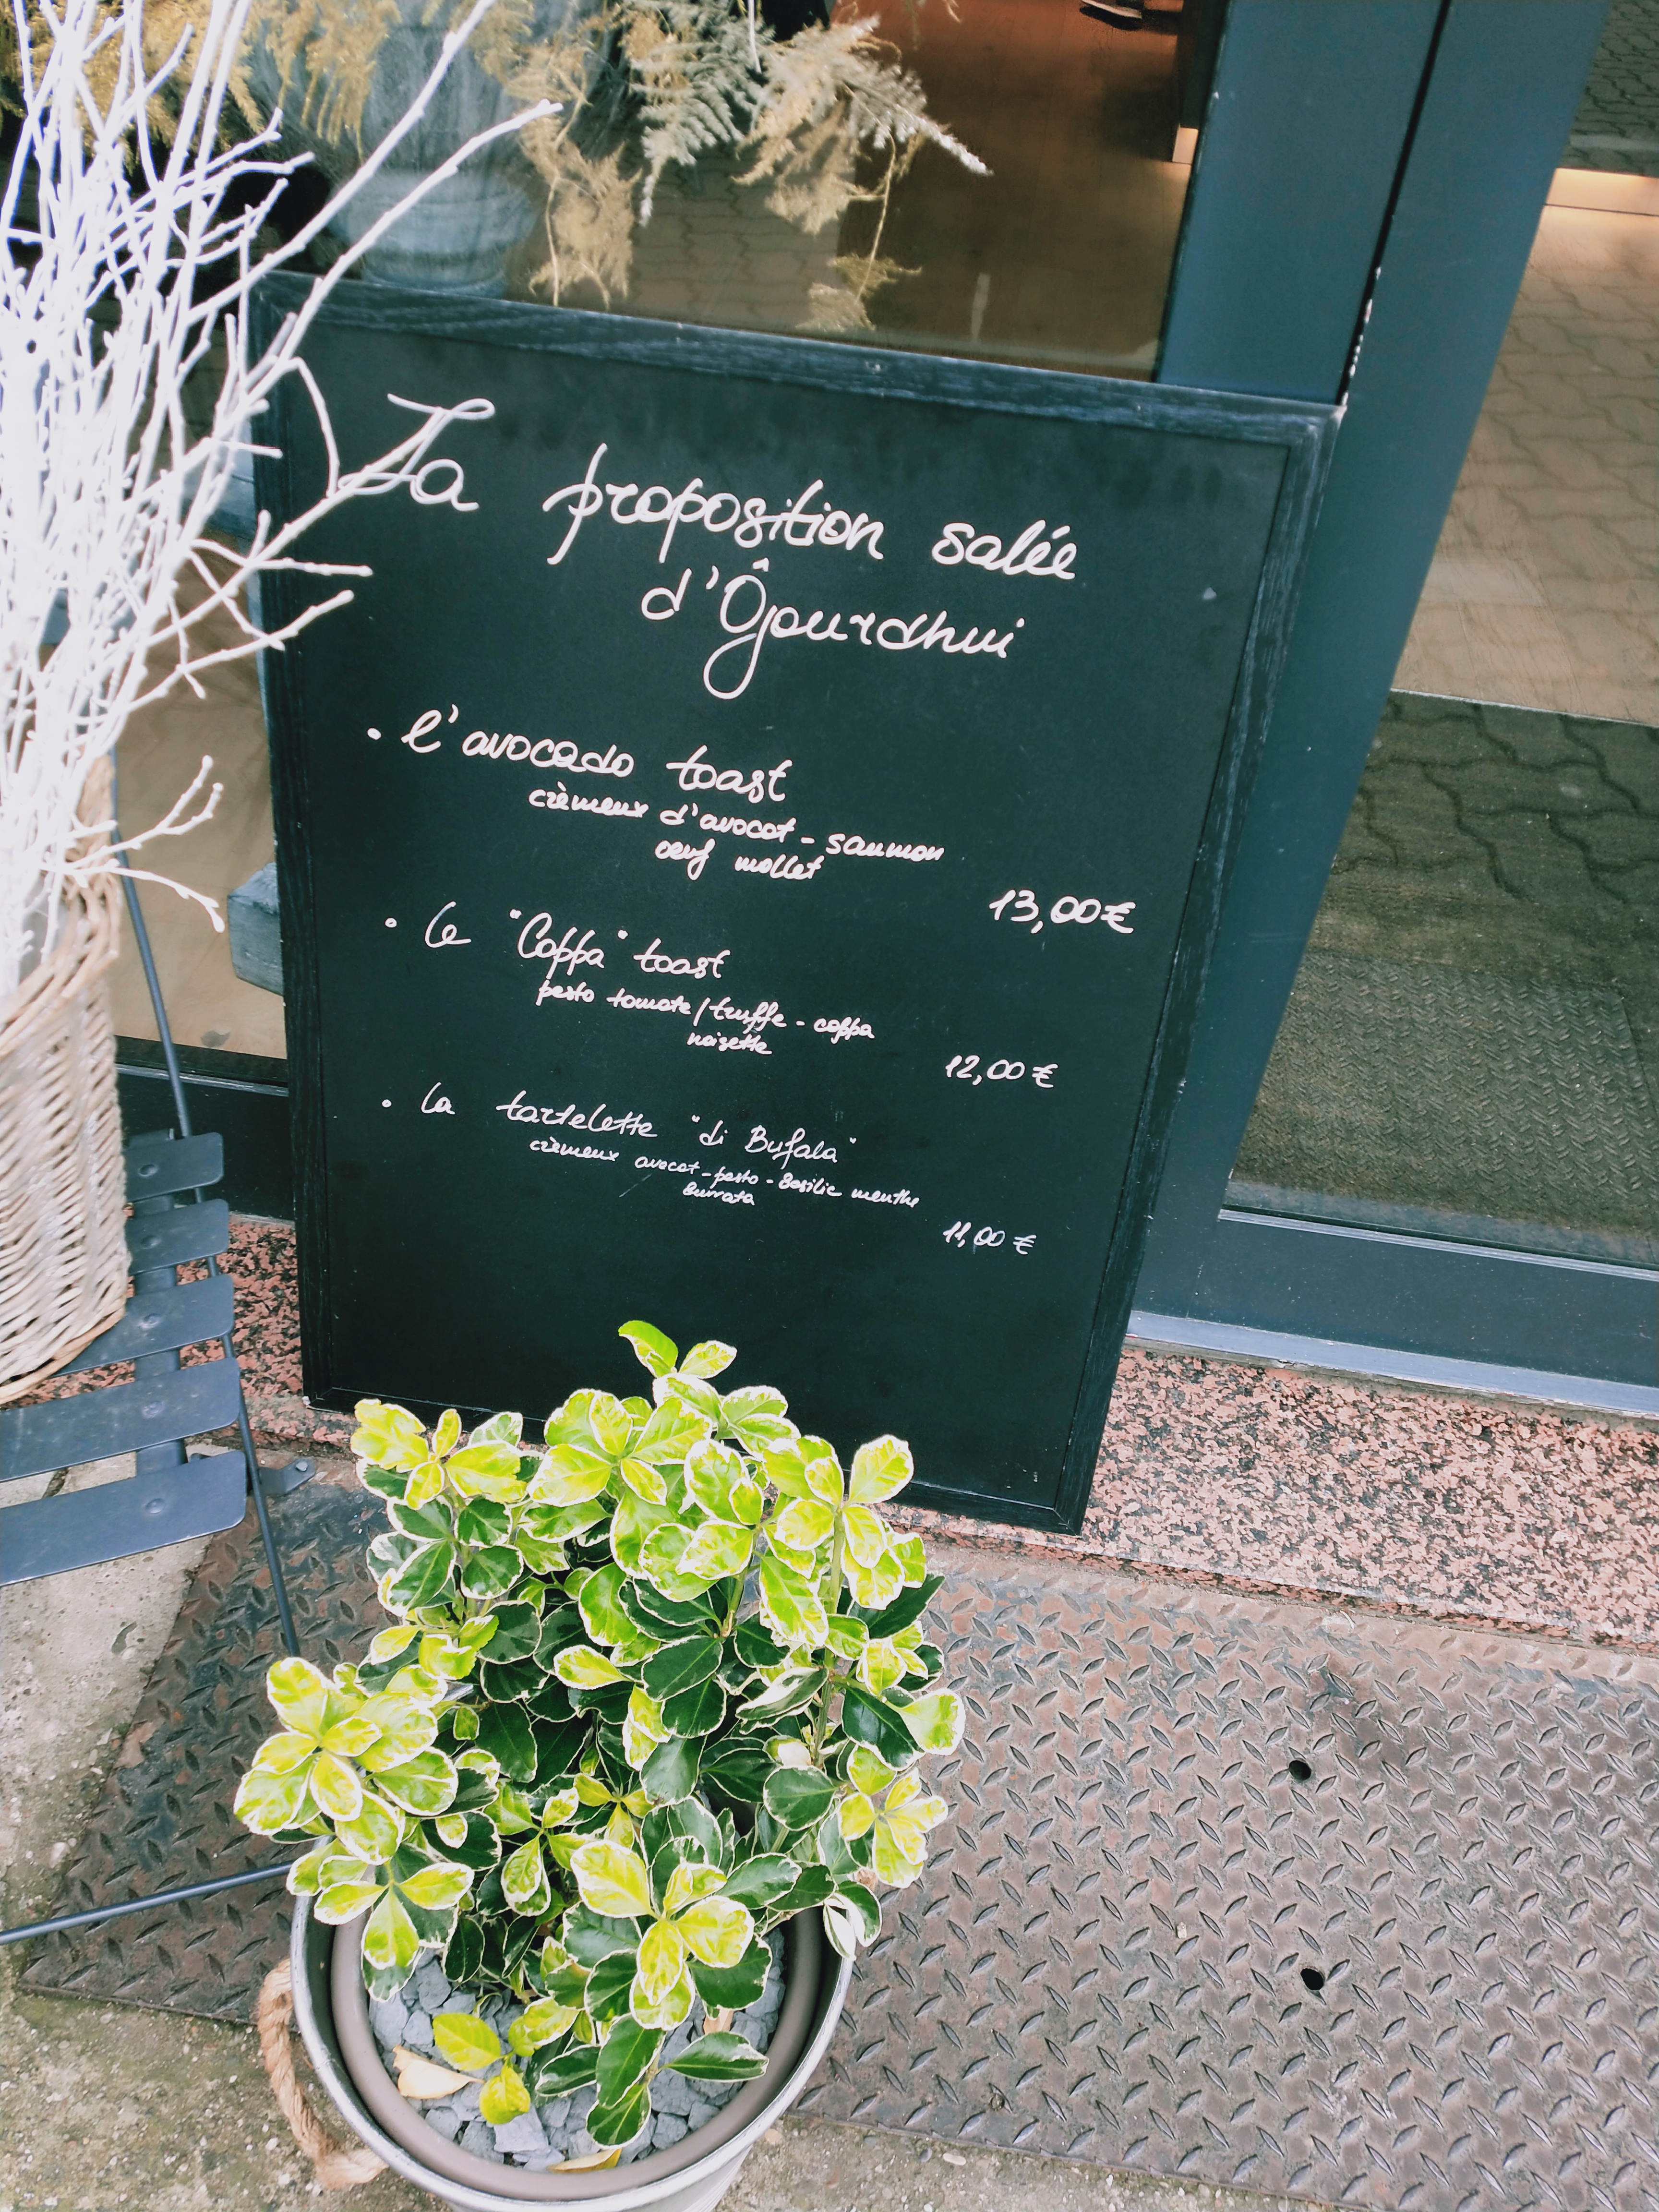 La proposition salée
d'Ôjourdhui
• l'avocado toast
crèmeux d'avocat - saumon
œuf mollet
13,00€
• Le "Coppa" toast
pesto tomate/truffe - coppa
noisette
12,00€
• La tartelette "di Bufala"
crèmeux avocat - pesto - basilic menthe
burrata
11,00 €